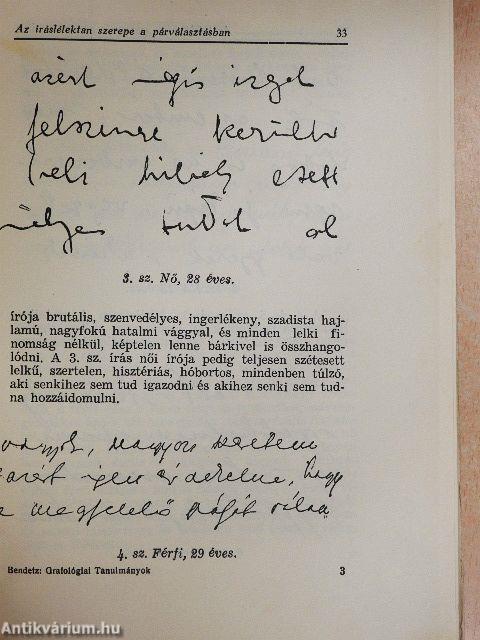 Az íráslélektan szerepe a párválasztásban 33
azért mégis izgat
felszinre került
lelki hibiel esett
mélyen tudat al
3. sz. Nő, 28 éves.
írója brutális, szenvedélyes, ingerlékeny, szadista haj-
lamú, nagyfokú hatalmi vággyal, és minden lelki fi-
nomság nélkül, képtelen lenne bárkivel is összhango-
lódni. A 3. sz. írás női írója pedig teljesen szétesett
lelkű, szertelen, hisztériás, hóbortos, mindenben túlzó,
aki senkihez sem tud igazodni és akihez senki sem tud-
na hozzáidomulni.
vagyok, nagyon szeretem
azért igen érdekelne, hogy
a megfelelő párját
4. sz. Férfi, 29 éves.
Bendetz: Grafológiai Tanulmányok 3
Antikvárium.hu